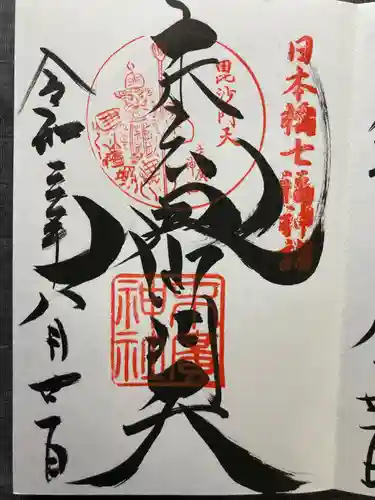 日本橋七福神詣
毘沙門天
末広
毘沙門天
末廣
神社
令和三年八月廿一日